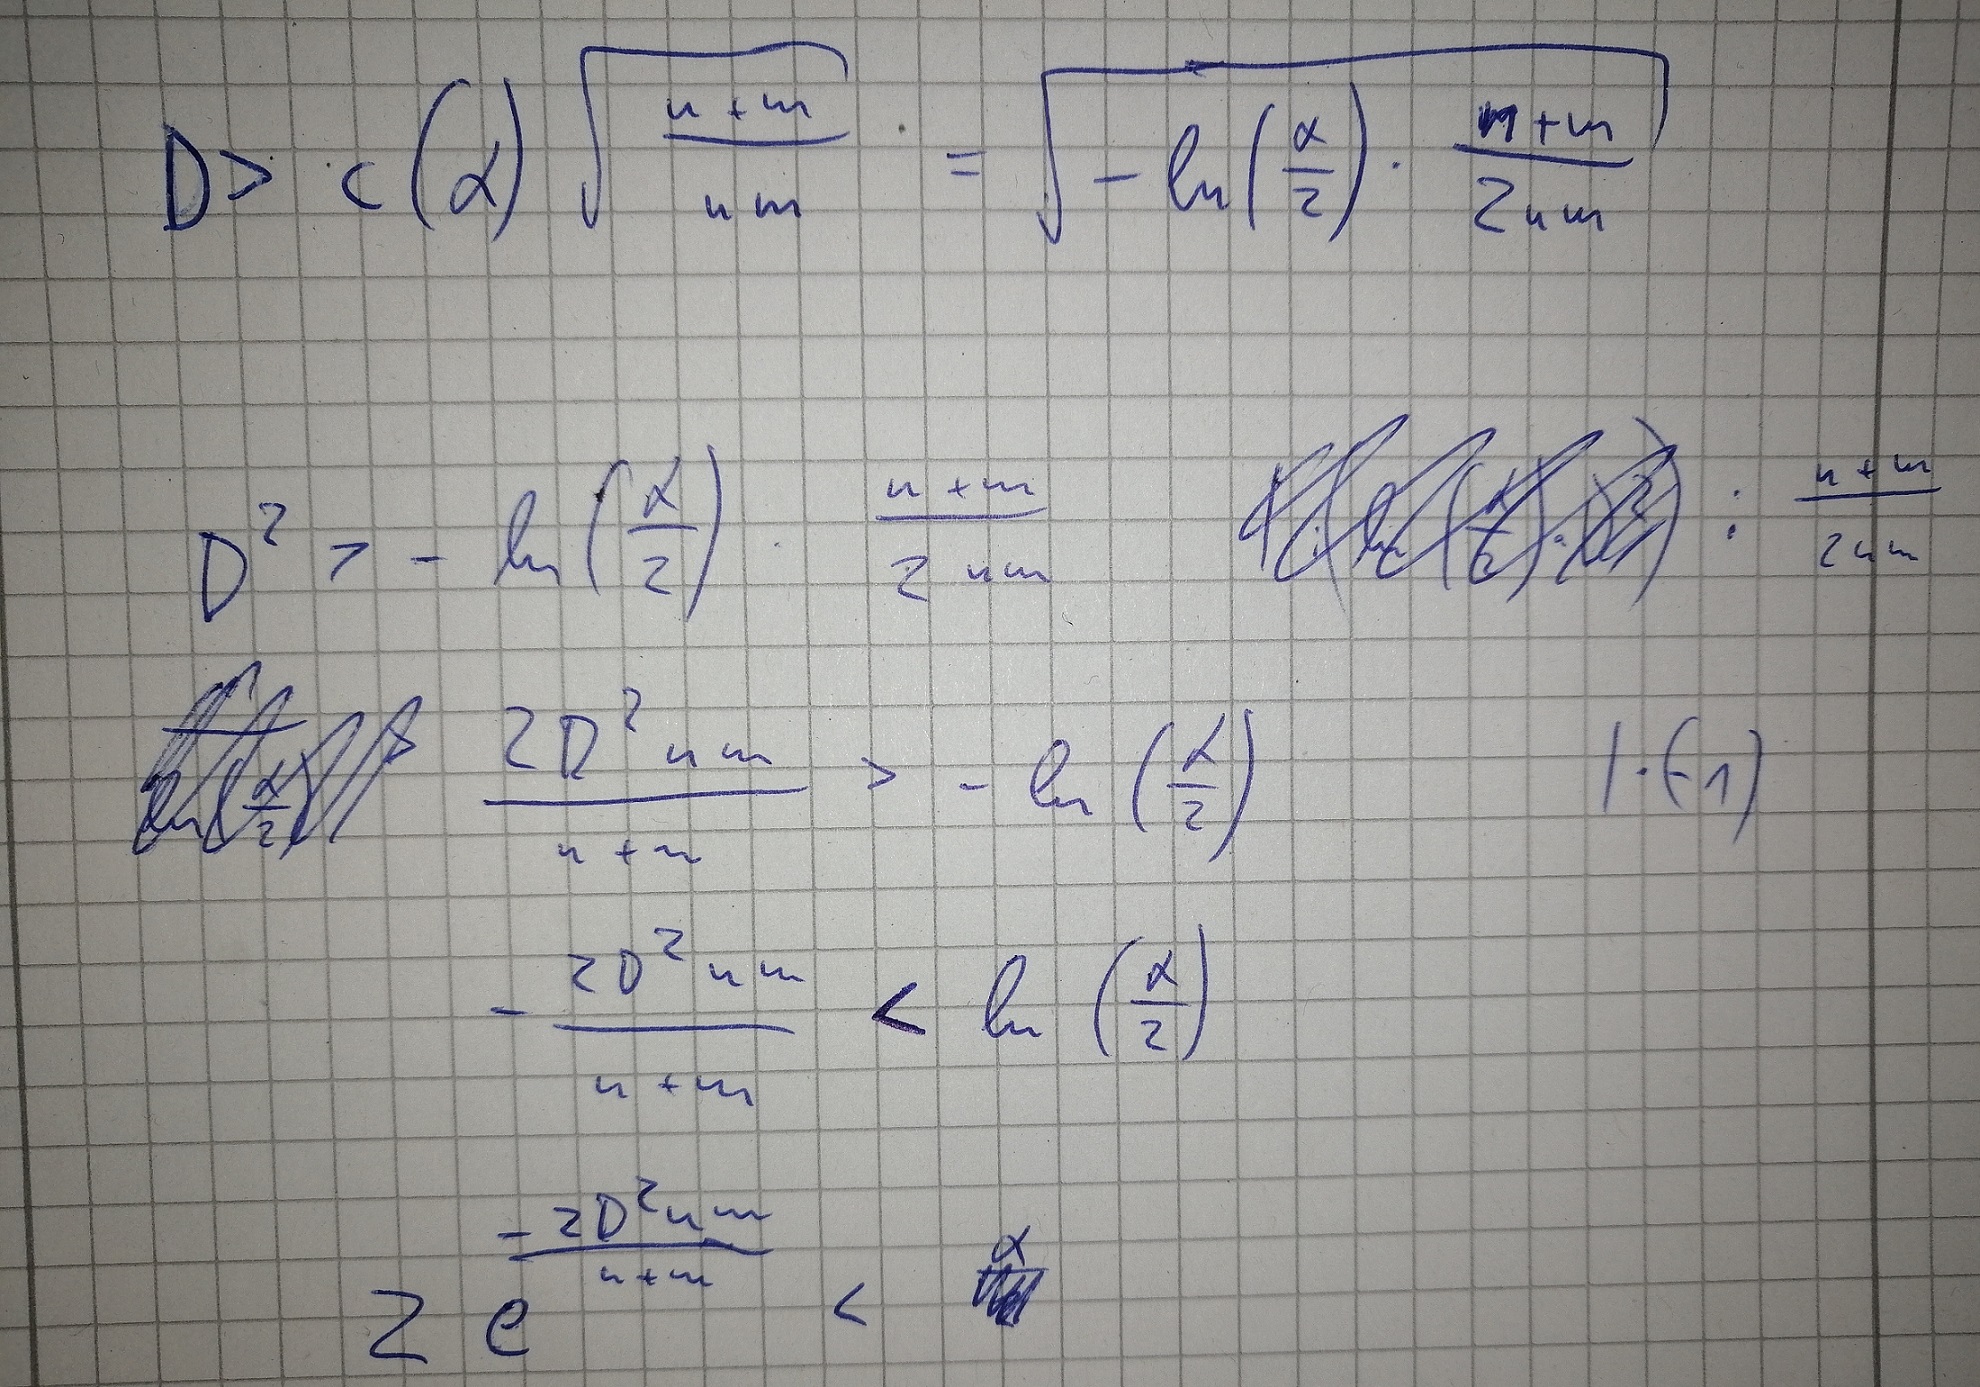 D > c(α) √((n+m)/(nm)) = √(-ln(α/2) · (n+m)/(2nm))
D² > - ln(α/2) · (n+m)/(2nm) : (n+m)/(2nm)
(2D²nm)/(n+m) > - ln(α/2) | · (-1)
- (2D²nm)/(n+m) < ln(α/2)
2 e^(-(2D²nm)/(n+m)) < α